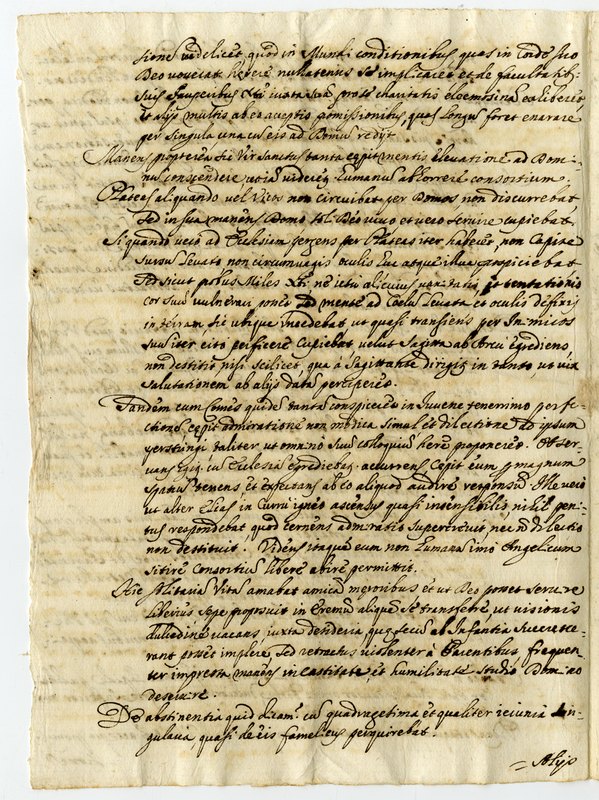 sione videlicet quod in Mundi conditionibus quas in corde suo
Deo voverat habere nullatenus se implicaret et de facultatib:
suis Pauperibus Xti iuxta suas posse charitatis eleemosina eo liberet
et alijs multis ab eo acceptis promissionibus, quas longu foret enarare
per singula una cu eis ad Domus redijt
Manens propterea hic Vir Sanctus tanta cepit mentis elevatione ad Domi-
nu conscendere uti videret humanus abhorrere consortium.
Plateas aliquando vel Vicos non circuibat per Domos non discurrebat
sed in sua manens Domo soli Deo vivo et vero servire cupiebat
Si quando vero ad Ecclesiam pergens per Plateas iter haberet, non Capite
sursu levato non circumvagis oculis huc atque illuc prospiciebat
sed sicut probus Miles Xti, ne ictu alicuius tentationis
cor suu vulnerari posset mente ad Coelu levata et oculis defixis
in terram sic ubique incedebat ut quasi transiens per Inimicos
suu iter cito perficere Cupiebat velut Sagitta ab Arcu egrediens
non destitit nisi scilicet, qua à Sagittante dirigit in tanto ut vix
salutationem ab alijs data perciperet.
Tandem cum Comes quide tanta conspiceret in Iuvene tenerrimo perfe-
ctione cepit admiratione non modica simul et dilectione ipsum
perstringi taliter ut omnino suu colloquiu here proponeret. Obser-
vans igit. cu Ecclesia egrediebat. accurrens Cepit eum p magnum
spatiu tenens, et expectans ab eo aliquod audire responsu. Ille vero
ut alter Elias in Curru igneo ascensus quasi insensibilis nihil peni-
tus respondebat, quod cernens admiratio supercrevit, nec no dilectio
non destituit. Videns itaque eum non humana imo Angelicum
sitire Consortiu libere abire permittit.
Hic solitaria Vita amabat amica meroribus et ut Deo posset servire
liberius sepe proposuit in Eremu aliqua se transferre ut visionis
dulcedine vacans, iuxta desideria, que secu ab Infantia succreve-
rant posset implere sed retractus violenter à Parentibus frequen-
ter impresta manens in castitate, et humilitate studio Domino
deservire.
De abstinentia quid dicam. cu quadragesima et qualiter ieiunia sin-
gulava, quasi de eis famelicus perquirebat.
= Alijs